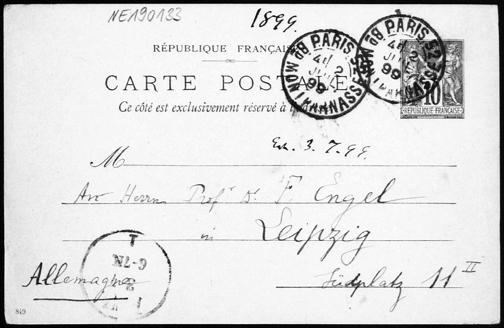 NE190133
1899.
RÉPUBLIQUE FRANÇAISE
CARTE POSTALE
Ce côté est exclusivement réservé à
PARIS
BD MONTPARNASSE
2
JUIL
99
PARIS 52
BD MONTPARNASSE
2
99
10
REPUBLIQUE FRANÇAISE
3.7.99.
M
An Herrn Prof Dr F. Engel
in
Leipzig
Allemagne
Südplatz 11 II
819